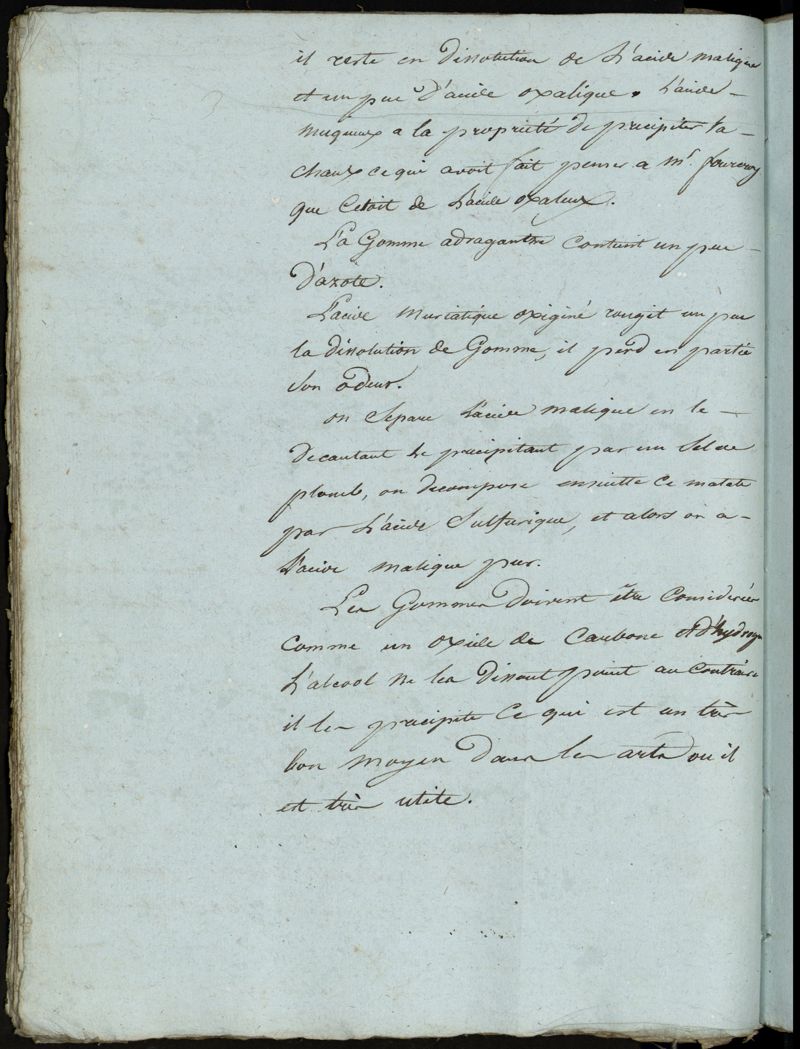 il reste en dissolution de l'acide malique
et un peu d'acide oxalique. L'acide –
muqueux a la proprieté de precipiter la –
chaux ce qui avoit fait penser a mr. fourcroy
que cetoit de l'acide oxaleux.
La Gomme adraganthe contient un peu –
d'azote.
L'acide muriatique oxigéné rougit un peu
la dissolution de Gomme, il perd en partie
son odeur.
on separe l'acide malique en le –
decantant le precipitant par un sel de
plomb, on decompose ensuitte ce malate
par l'acide sulfurique, et alors on a –
l'acide malique pur.
Les Gommes doivent être considerées
comme un oxide de carbone et d'hydrogn
L'alcool ne les dissout point au contraire
il les precipite ce qui est un très
bon moyen dans les arts ou il
est très utile.